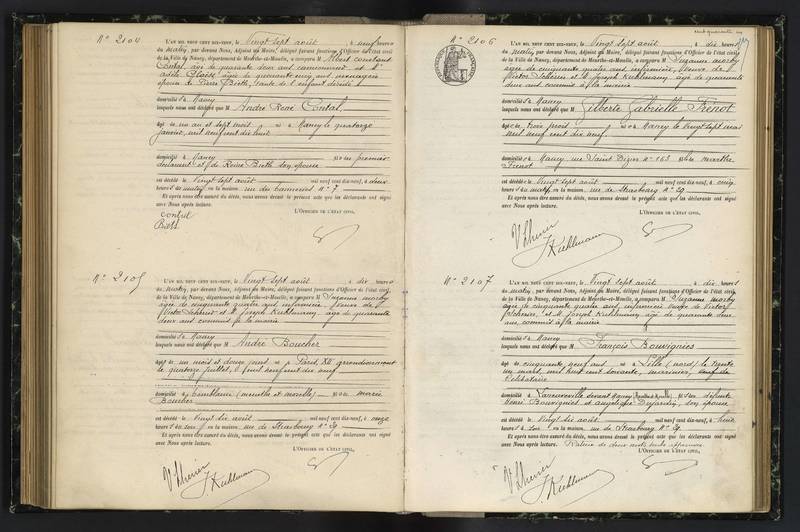 N° 2104
L'AN MIL NEUF CENT DIX-NEUF, le Vingt sept août, à neuf heures
du matin, par devant Nous, Adjoint au Maire, délégué faisant fonctions d'Officier de l'état civil
de la Ville de Nancy, département de Meurthe-et-Moselle, a comparu M Albert constant
Contal, âgé de quarante deux ans, camionneur et Me
adèle âgée de quarante cinq ans, ménagère
épouse de Barth, tante de l'enfant décédé
domicilié s à Nancy
lesquels nous ont déclaré que M André René Contal
âgé de un an et sept mois né à Nancy le quatorze
janvier, mil neuf cent dix huit
domicilié à Nancy fils du premier
déclarant et de Reine Barth son épouse
est décédé le vingt sept août mil neuf cent dix-neuf, à deux
heures du matin, en la maison, rue du N° 7
Et après nous être assuré du décès, nous avons dressé le présent acte que les déclarants ont signé
avec Nous après lecture.
L'OFFICIER DE L'ÉTAT CIVIL,
Contal
N° 2105
L'AN MIL NEUF CENT DIX-NEUF, le Vingt sept août, à dix heures
du matin, par devant Nous, Adjoint au Maire, délégué faisant fonctions d'Officier de l'état civil
de la Ville de Nancy, département de Meurthe-et-Moselle, a comparu M Suzanne
âgée de cinquante quatre ans infirmière, Veuve de
Victor et M. Joseph Kuhlmann, âgé de quarante
deux ans commis à la mairie
domicilié s à Nancy
lesquels nous ont déclaré que M André Boucher
âgé de un mois et douze jours né à Paris, XII arrondissement
le quatorze juillet, mil neuf cent dix neuf
domicilié à (meurthe et moselle) fils de marie
Boucher
est décédé le vingt six août mil neuf cent dix-neuf, à onze
heures du soir, en la maison, rue de Strasbourg N° 29
Et après nous être assuré du décès, nous avons dressé le présent acte que les déclarants ont signé
avec Nous après lecture.
L'OFFICIER DE L'ÉTAT CIVIL,
J. Kuhlmann
N° 2106
L'AN MIL NEUF CENT DIX-NEUF, le Vingt sept août, à dix heures
du matin, par devant Nous, Adjoint au Maire, délégué faisant fonctions d'Officier de l'état civil
de la Ville de Nancy, département de Meurthe-et-Moselle, a comparu M Suzanne
âgée de cinquante quatre ans infirmière, Veuve de
Victor et M. Joseph Kuhlmann, âgé de quarante
deux ans commis à la mairie
domicilié s à Nancy
lesquels nous ont déclaré que M Gilberte Gabrielle
âgée de trois mois née à Nancy le vingt sept mai
mil neuf cent dix neuf
domiciliée à Nancy rue Saint Dizier N° 163 fille marthe
est décédée le Vingt sept août mil neuf cent dix-neuf, à cinq
heures du matin, en la maison, rue de Strasbourg N° 29
Et après nous être assuré du décès, nous avons dressé le présent acte que les déclarants ont signé
avec Nous après lecture.
L'OFFICIER DE L'ÉTAT CIVIL,
J. Kuhlmann
N° 2107
L'AN MIL NEUF CENT DIX-NEUF, le Vingt sept août, à dix heures
du matin, par devant Nous, Adjoint au Maire, délégué faisant fonctions d'Officier de l'état civil
de la Ville de Nancy, département de Meurthe-et-Moselle, a comparu M Suzanne
âgée de cinquante quatre ans, infirmière Veuve de Victor
et M. Joseph Kuhlmann, âgé de quarante deux
ans, commis à la mairie
domicilié s à Nancy
lesquels nous ont déclaré que M François Bouvignies
âgé de cinquante neuf ans né à Lille (nord) le trente
un mars, mil huit cent soixante, marinier,
Célibataire
domicilié à Laneuveville devant Nancy (Meurthe et Moselle) fils de défunts
Henri Bouvignies et angélique Dejardin, son épouse
est décédé le Vingt six août mil neuf cent dix-neuf, à huit
heures du soir, en la maison, rue de Strasbourg N° 29
Et après nous être assuré du décès, nous avons dressé le présent acte que les déclarants ont signé
avec Nous après lecture.
L'OFFICIER DE L'ÉTAT CIVIL,
J. Kuhlmann